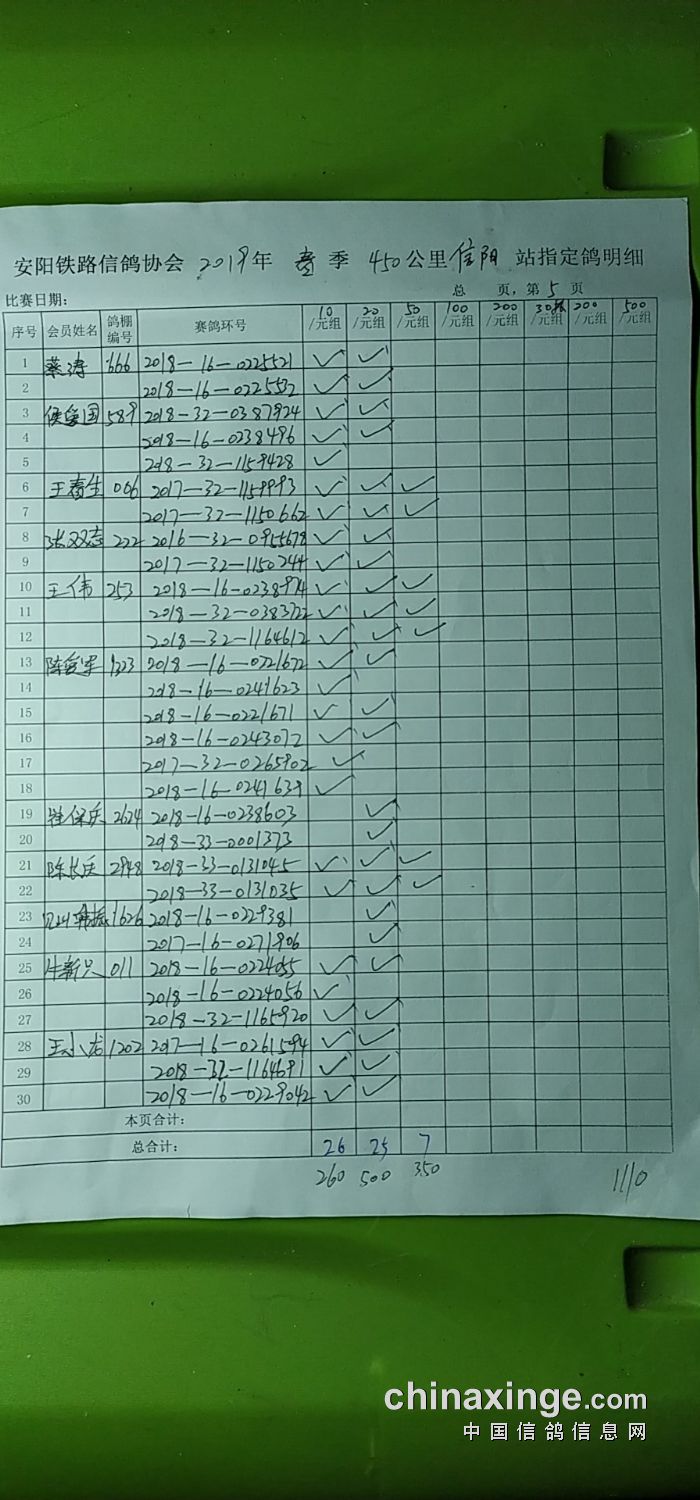 安阳铁路信鸽协会 2019年 春 季 450公里信阳 站指定鸽明细
比赛日期: 总 页,第 5 页
序号 会员姓名 鸽棚编号 赛鸽环号 10/元组 20/元组 50/元组 100/元组 200/元组 /元组 200/元组 500/元组
1 蔡涛 666 2018-16-0225521 ✓ ✓
2 2018-16-0225532 ✓ ✓
3 侯爱国 589 2018-32-0387924 ✓ ✓
4 2018-16-0238496 ✓ ✓
5 2018-32-1159428 ✓
6 王春生 006 2017-32-1159993 ✓ ✓ ✓
7 2017-32-1150662 ✓ ✓ ✓
8 张双志 222 2016-32-0955678 ✓ ✓
9 2017-32-1150244 ✓ ✓
10 王伟 253 2018-16-0238974 ✓ ✓ ✓
11 2018-32-038372 ✓ ✓ ✓
12 2018-32-1164612 ✓ ✓ ✓
13 陈爱军 1223 2018-16-0221672 ✓ ✓
14 2018-16-0241623 ✓
15 2018-16-0221671 ✓ ✓
16 2018-16-0243072 ✓ ✓
17 2017-32-0265902 ✓
18 2018-16-0241639 ✓
19 崔保庆 2624 2018-16-0238603 ✓
20 2018-33-0001373 ✓
21 陈长庆 2948 2018-33-0131045 ✓ ✓ ✓
22 2018-33-0131035 ✓ ✓ ✓
23 1626 2018-16-0229381 ✓
24 2017-16-0271906 ✓
25 牛新只 011 2018-16-0224055 ✓ ✓
26 2018-16-0224056 ✓
27 2018-32-1165920 ✓ ✓
28 王小龙 1202 2017-16-0261594 ✓ ✓
29 2018-32-1164691 ✓ ✓
30 2018-16-0229042 ✓ ✓
本页合计:
总合计: 26 25 7
260 500 350 1110
chinaxinge.com
中国信鸽信息网